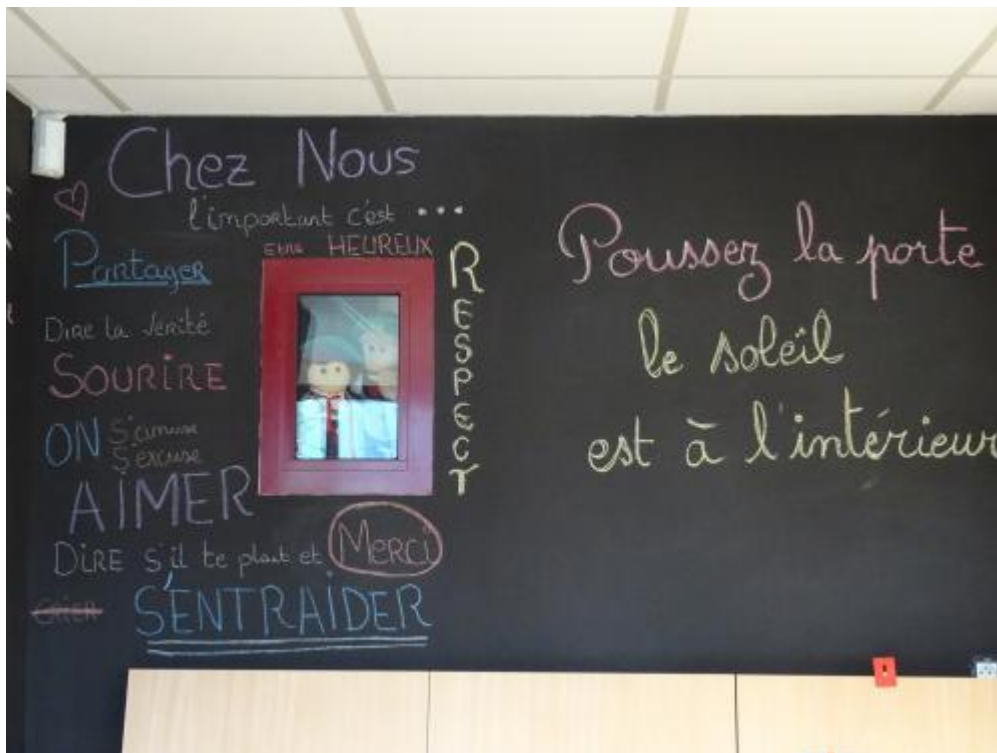 Chez Nous
l'important c'est ...
Etre HEUREUX
Partager
RESPECT
Dire la vérité
SOURIRE
ON S'amuse
S'excuse
AIMER
DIRE s'il te plait et Merci
CRIER
S'ENTRAIDER
Poussez la porte
le soleil
est à l'intérieur